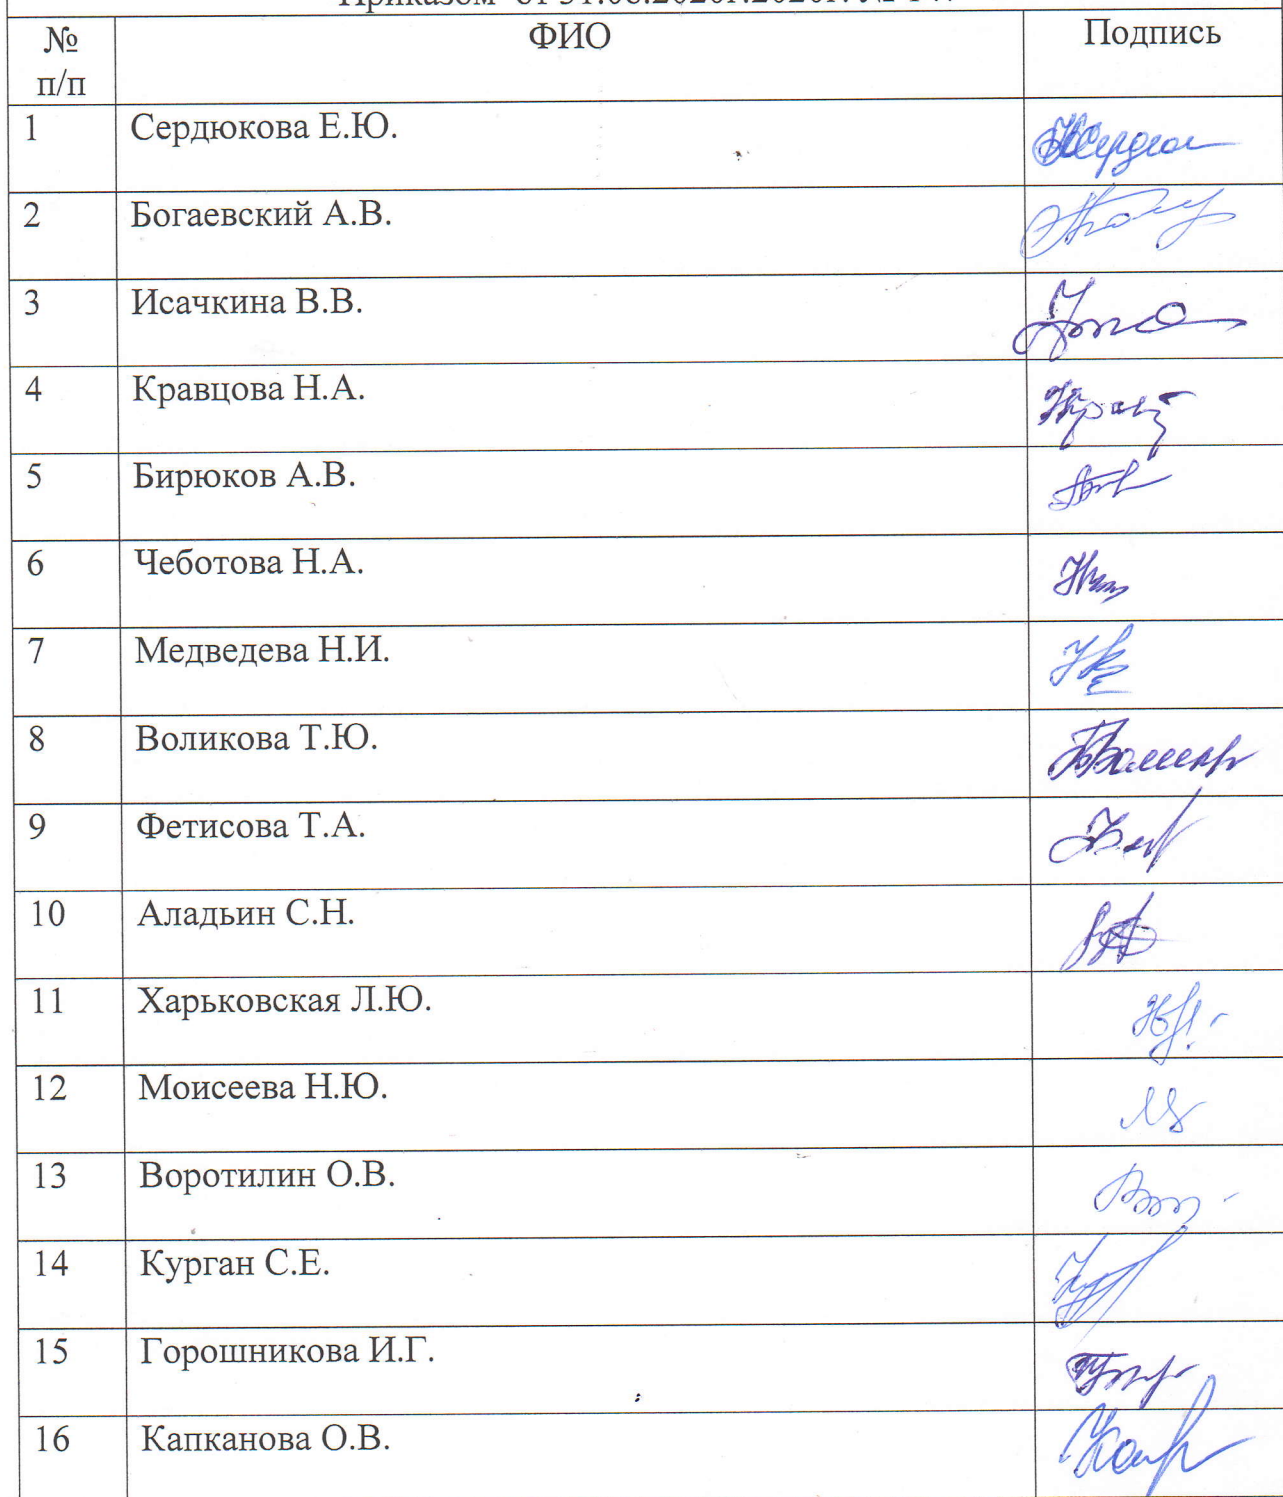 Приказом от 31.08.2020г.2020г. №
№ п/п ФИО Подпись
1 Сердюкова Е.Ю.
2 Богаевский А.В.
3 Исачкина В.В.
4 Кравцова Н.А.
5 Бирюков А.В.
6 Чеботова Н.А.
7 Медведева Н.И.
8 Воликова Т.Ю.
9 Фетисова Т.А.
10 Аладьин С.Н.
11 Харьковская Л.Ю.
12 Моисеева Н.Ю.
13 Воротилин О.В.
14 Курган С.Е.
15 Горошникова И.Г.
16 Капканова О.В.